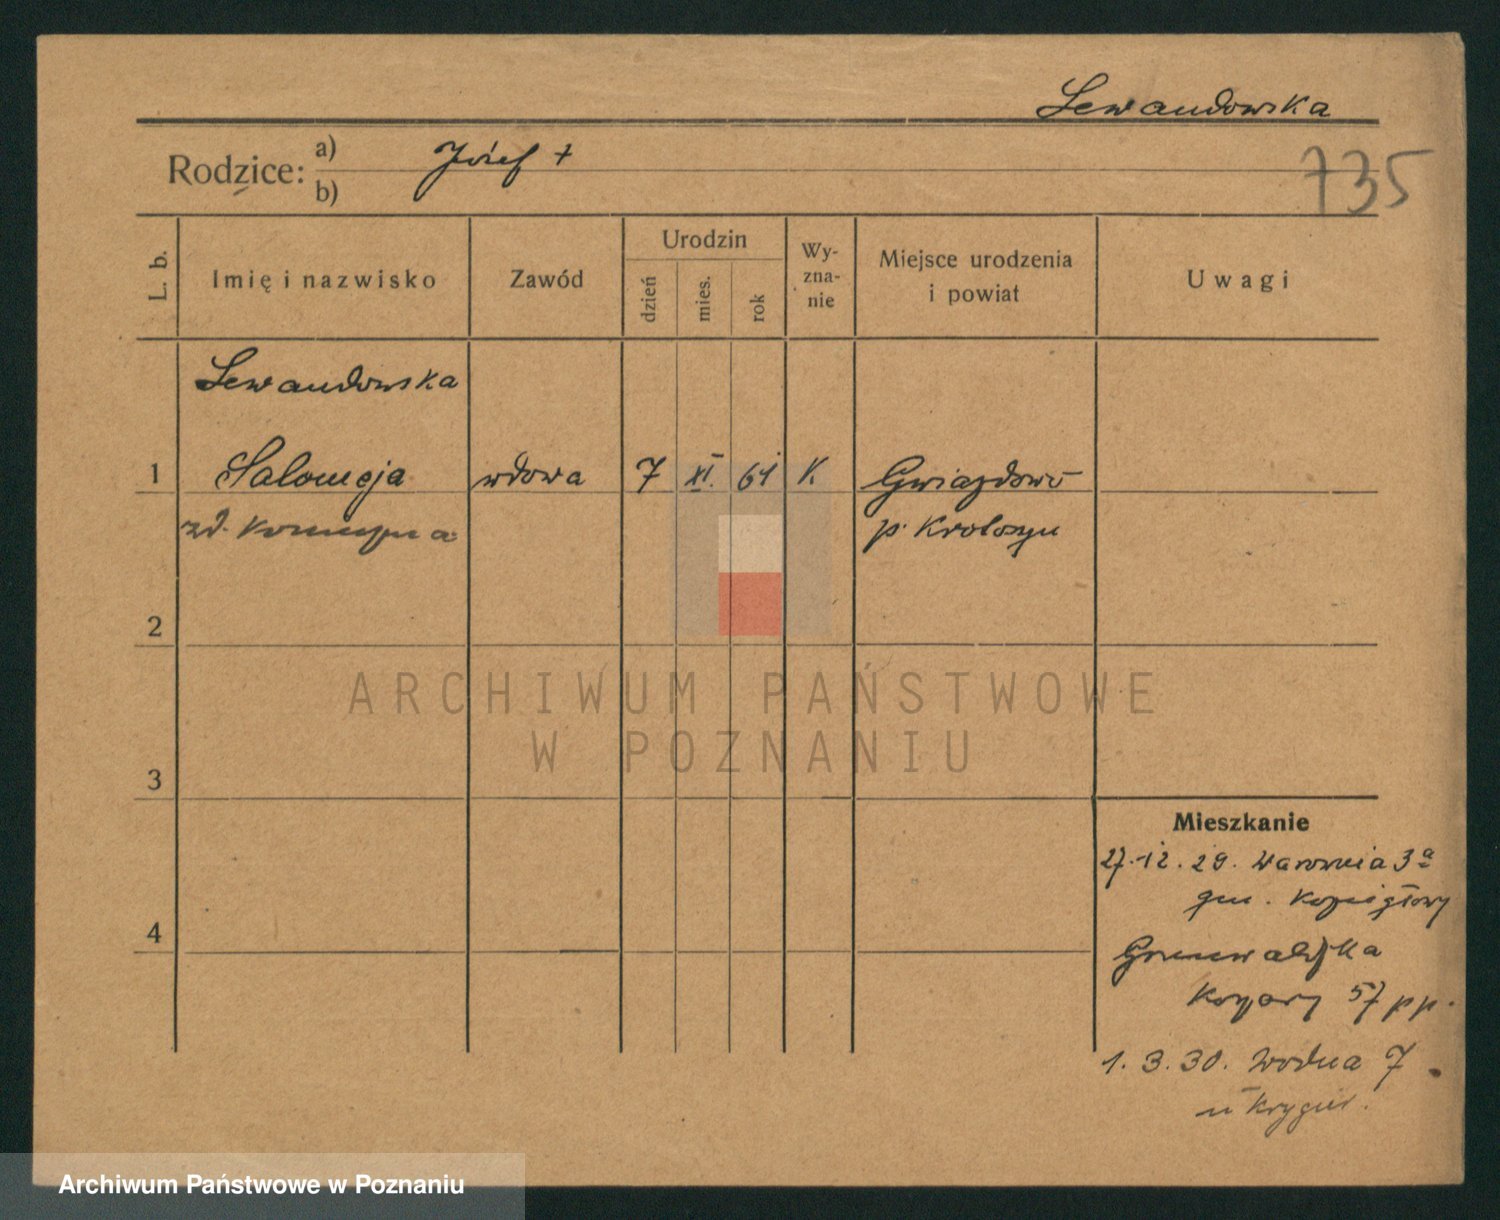 Lewandowska
Rodzice: a) Józef +
b)
735
L. b.
Imię i nazwisko
Zawód
Urodzin
dzień
mies.
rok
Wy-
zna-
nie
Miejsce urodzenia
i powiat
Uwagi
Lewandowska
1 Salomeja wdowa 7 XI. 61 K Gwiazdowo
zd.
p. Krotoszyn
2
3
4
Mieszkanie
27.12.29. Warownia 3a
gm.
Grunwaldzka
Koszary 57 pp.
1.3.30. Wodna 7.
u Krygier.
ARCHIWUM PAŃSTWOWE
W POZNANIU
Archiwum Państwowe w Poznaniu